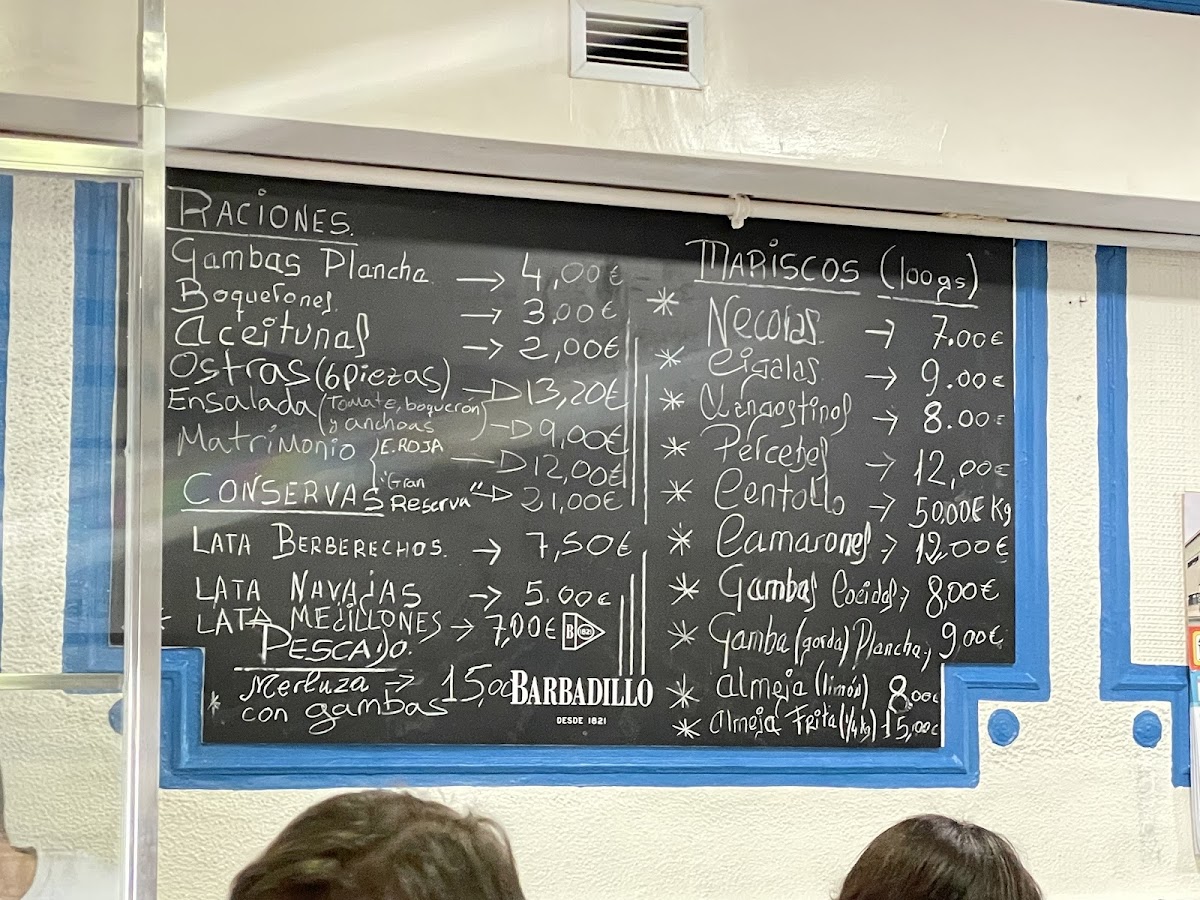 RACIONES.
Gambas Plancha. → 4,00€
Boquerones. → 3.00€
Aceitunas → 2,00€
Ostras (6 piezas) → 13,20€
Ensalada (Tomate, boquerón
y anchoas → 9,00€
Matrimonio E. ROJA → 12,00€
"Gran
Reserva" → 21,00€
CONSERVAS
LATA BERBERECHOS. → 7,50€
LATA NAVAJAS → 5.00€
LATA MEJILLONES → 7,00€
PESCADO.
* Merluza → 15,00
con gambas
B 1821
BARBADILLO
DESDE 1821
MARISCOS (100gs)
* Necoras → 7.00€
* Cigalas → 9.00€
* Langostinos → 8.00€
* Percebes → 12,00€
* Centollo → 50,00€ Kg
* Camarones → 12,00€
* Gambas Cocidas → 8,00€
* Gamba (gorda) Plancha → 9,00€
* almeja (limón) 8,00€
* Almeja Frita (1/4 kg) 15,00€